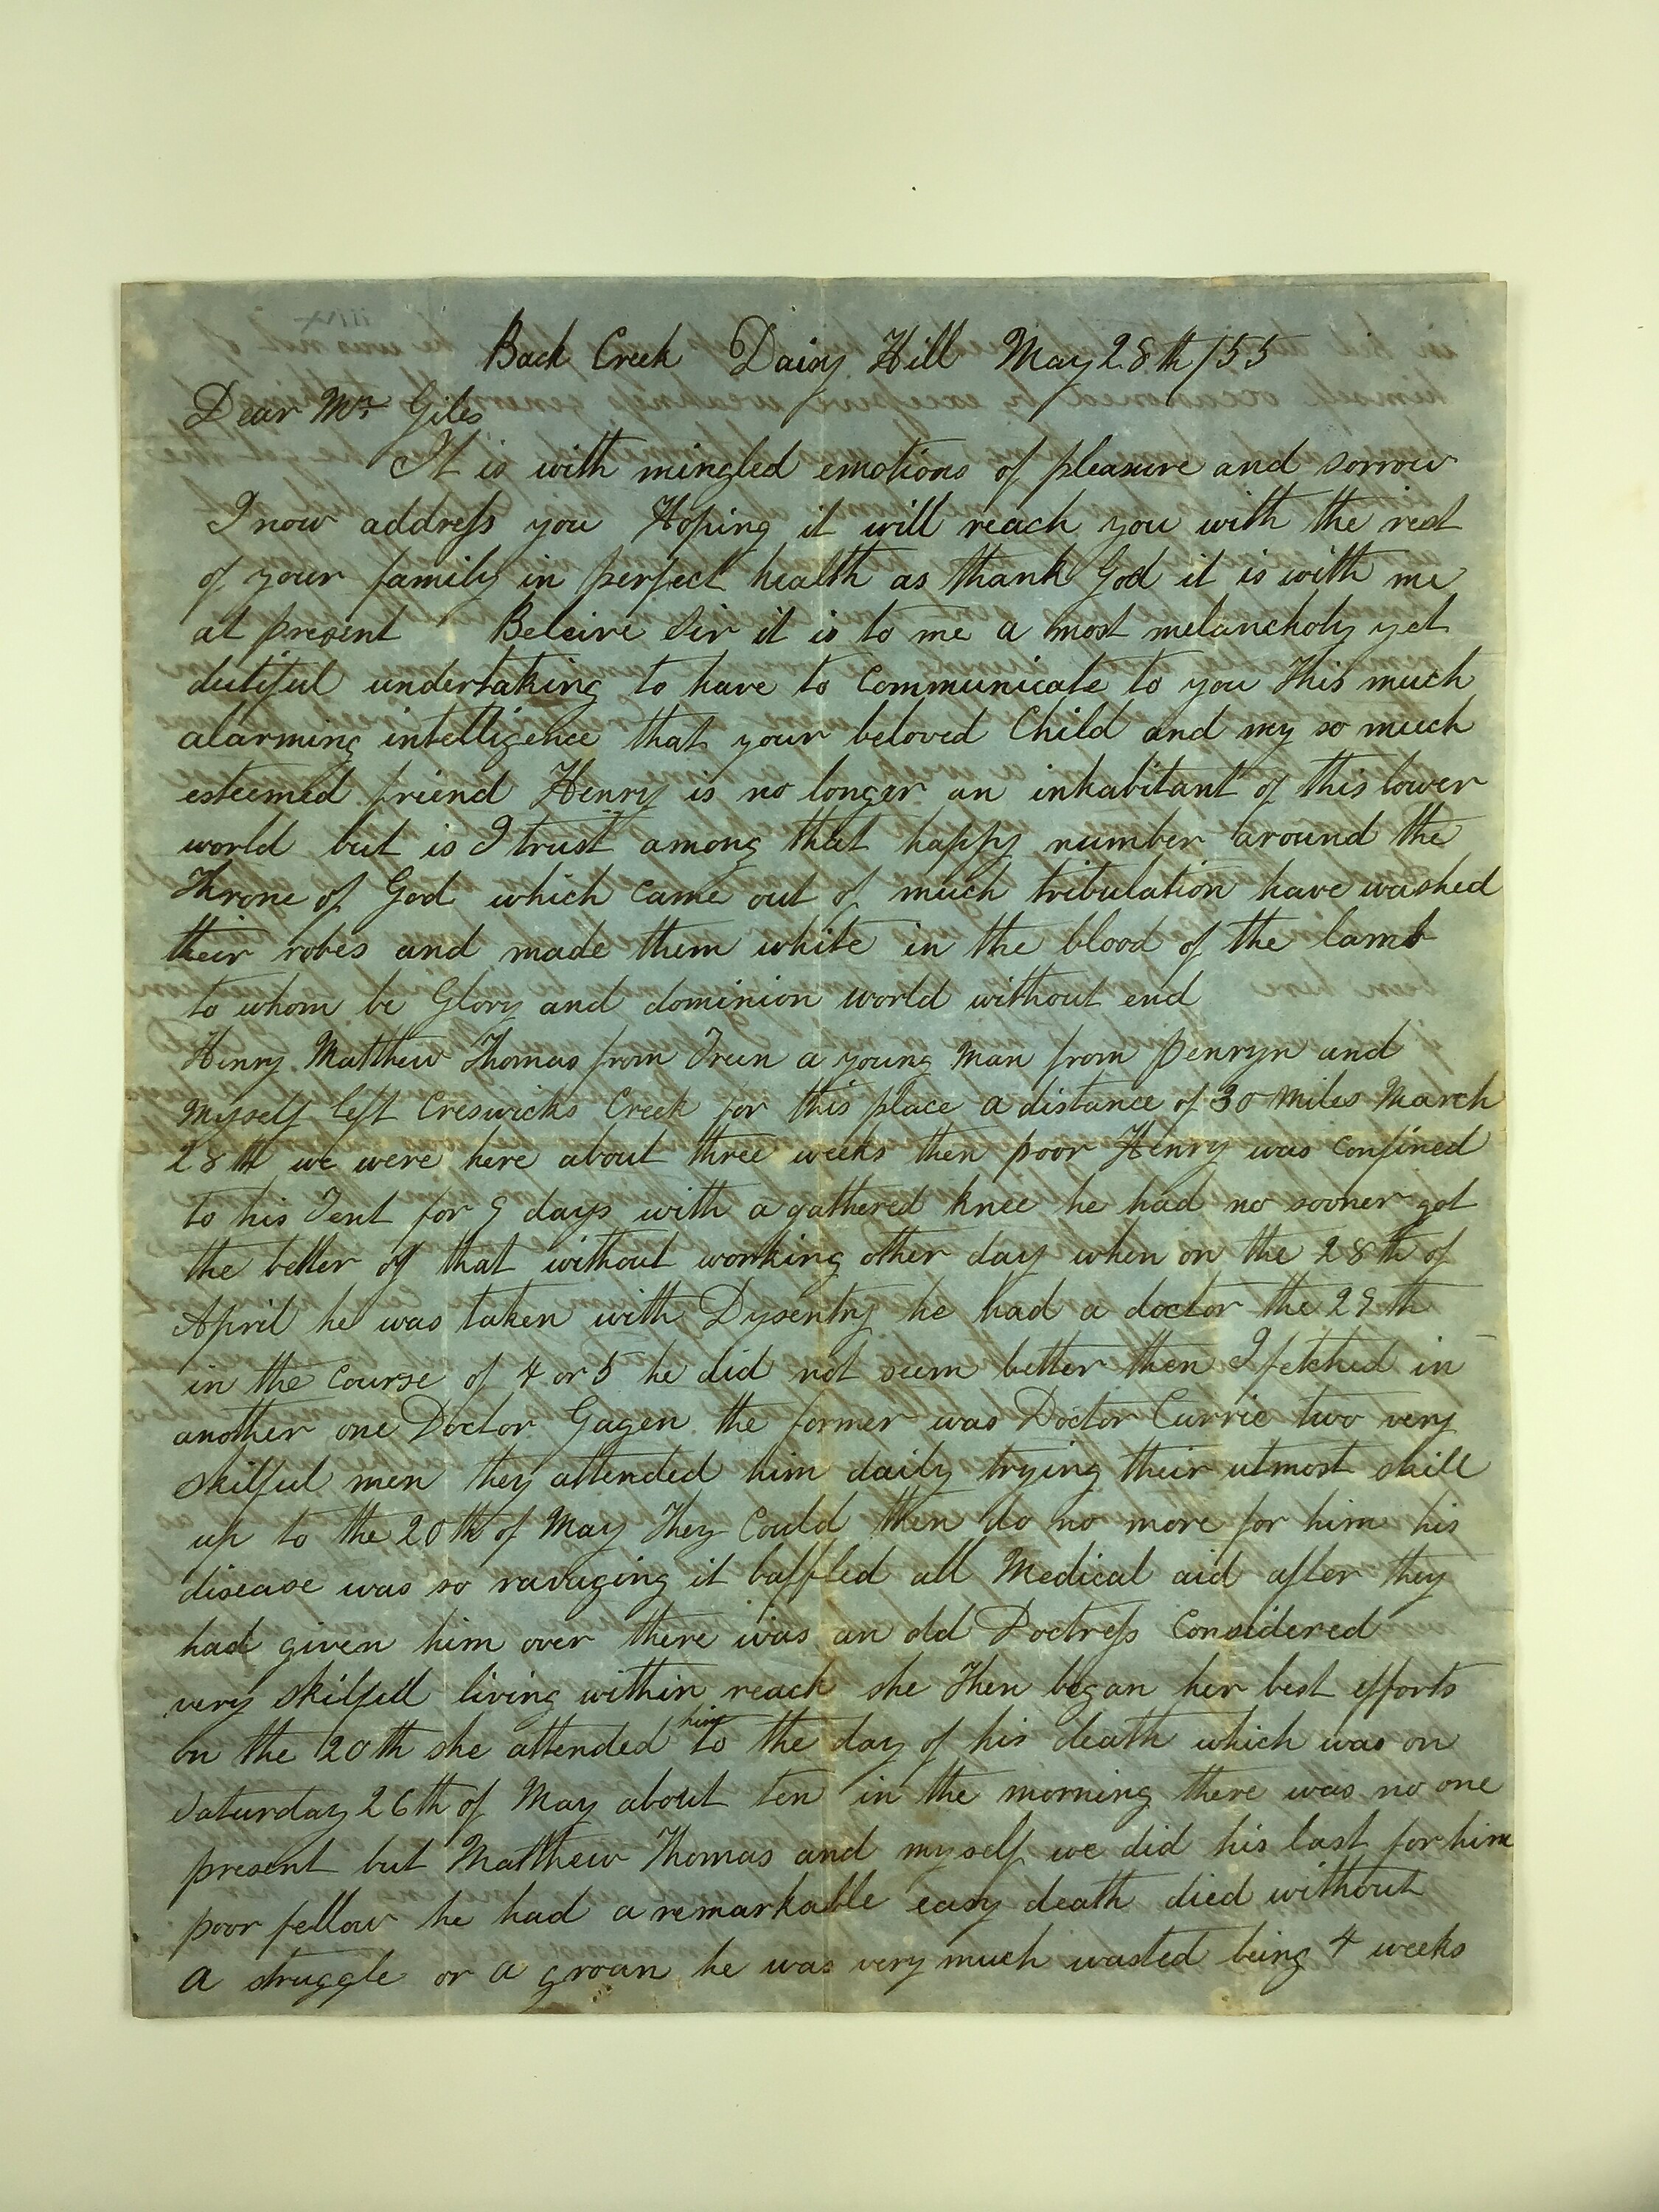 Back Creek Daisy Hill May 28th /55
Dear Mr Giles
It is with mingled emotions of pleasure and sorrow
I now address you Hoping it will reach you with the rest
of your family in perfect health as thank God it is with me
at present Beleive Sir it is to me a most melancholy yet
dutiful undertaking to have to Communicate to you This much
alarming intelligence that your beloved Child and my so much
esteemed friend Henry is no longer an inhabitant of this lower
world but is I trust among that happy number around the
Throne of God which came out of much tribulation have washed
their robes and made them white in the blood of the lamb
to whom be Glory and dominion world without end
Henry Matthew Thomas from Treen a young man from Penryn and
myself left Creswicks Creek for this place a distance of 30 miles March
28th we were here about three weeks then poor Henry was Confined
to his Tent for 9 days with a gathered knee he had no sooner got
the better of that without working other day when on the 28th of
April he was taken with Dysentry he had a doctor the 29th
in the Course of 4 or 5 he did not seem better then I fetched in
another one Doctor Gagen the former was Doctor Currie two very
skilful men they attended him daily trying their utmost skill
up to the 20th of May They Could then do no more for him his
disease was so ravaging it baffled all Medical aid after they
had given him over there was an old Doctress Considered
very skilfull living within reach she then began her best efforts
on the 20th she attended him to the day of his death which was on
Saturday 26th of May about ten in the morning there was no one
present but Matthew Thomas and myself we did his last for him
poor fellow he had a remarkable easy death died without
a struggle or a groan he was very much wasted being 4 weeks